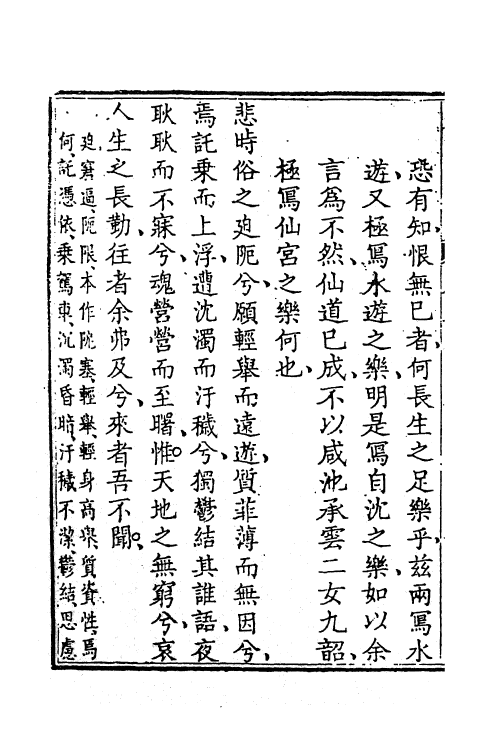 恐有知恨無已者何長生之足樂乎兹兩寫水
遊又極寫水遊之樂明是寫自沈之樂如以余
言爲不然仙道已成不以咸池承雲二女九韶
極寫仙宮之樂何也
悲時俗之廹阨兮願輕舉而遠遊質菲薄而無因兮
焉託乗而上浮遭沈濁而汙穢兮獨鬱結其誰語夜
耿耿而不寐兮魂營營而至曙惟天地之無窮兮哀
人生之長勤徃者余弗及兮來者吾不聞
廹窮逼阨限本作阸塞輕舉輕身高舉質資性焉
何託憑依乗駕車沉濁昏暗汙穢不潔鬱結思慮